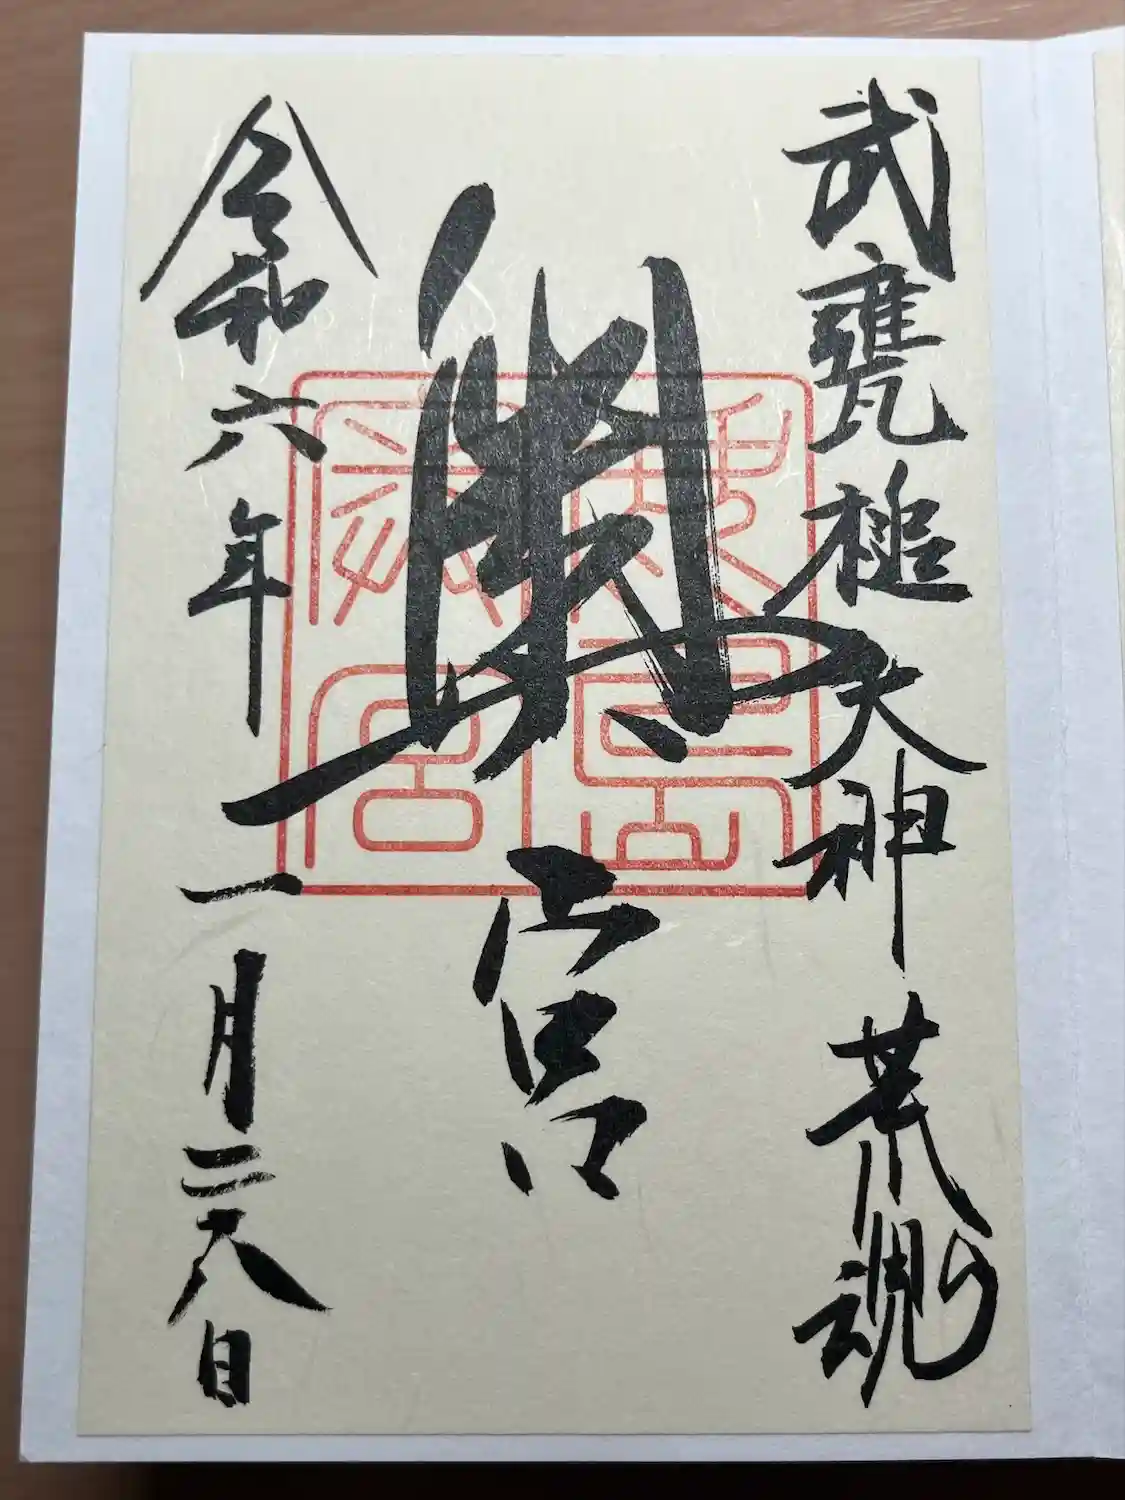 武甕槌大神 荒魂
奥宮
令和六年一月二八日
鹿島奥宮